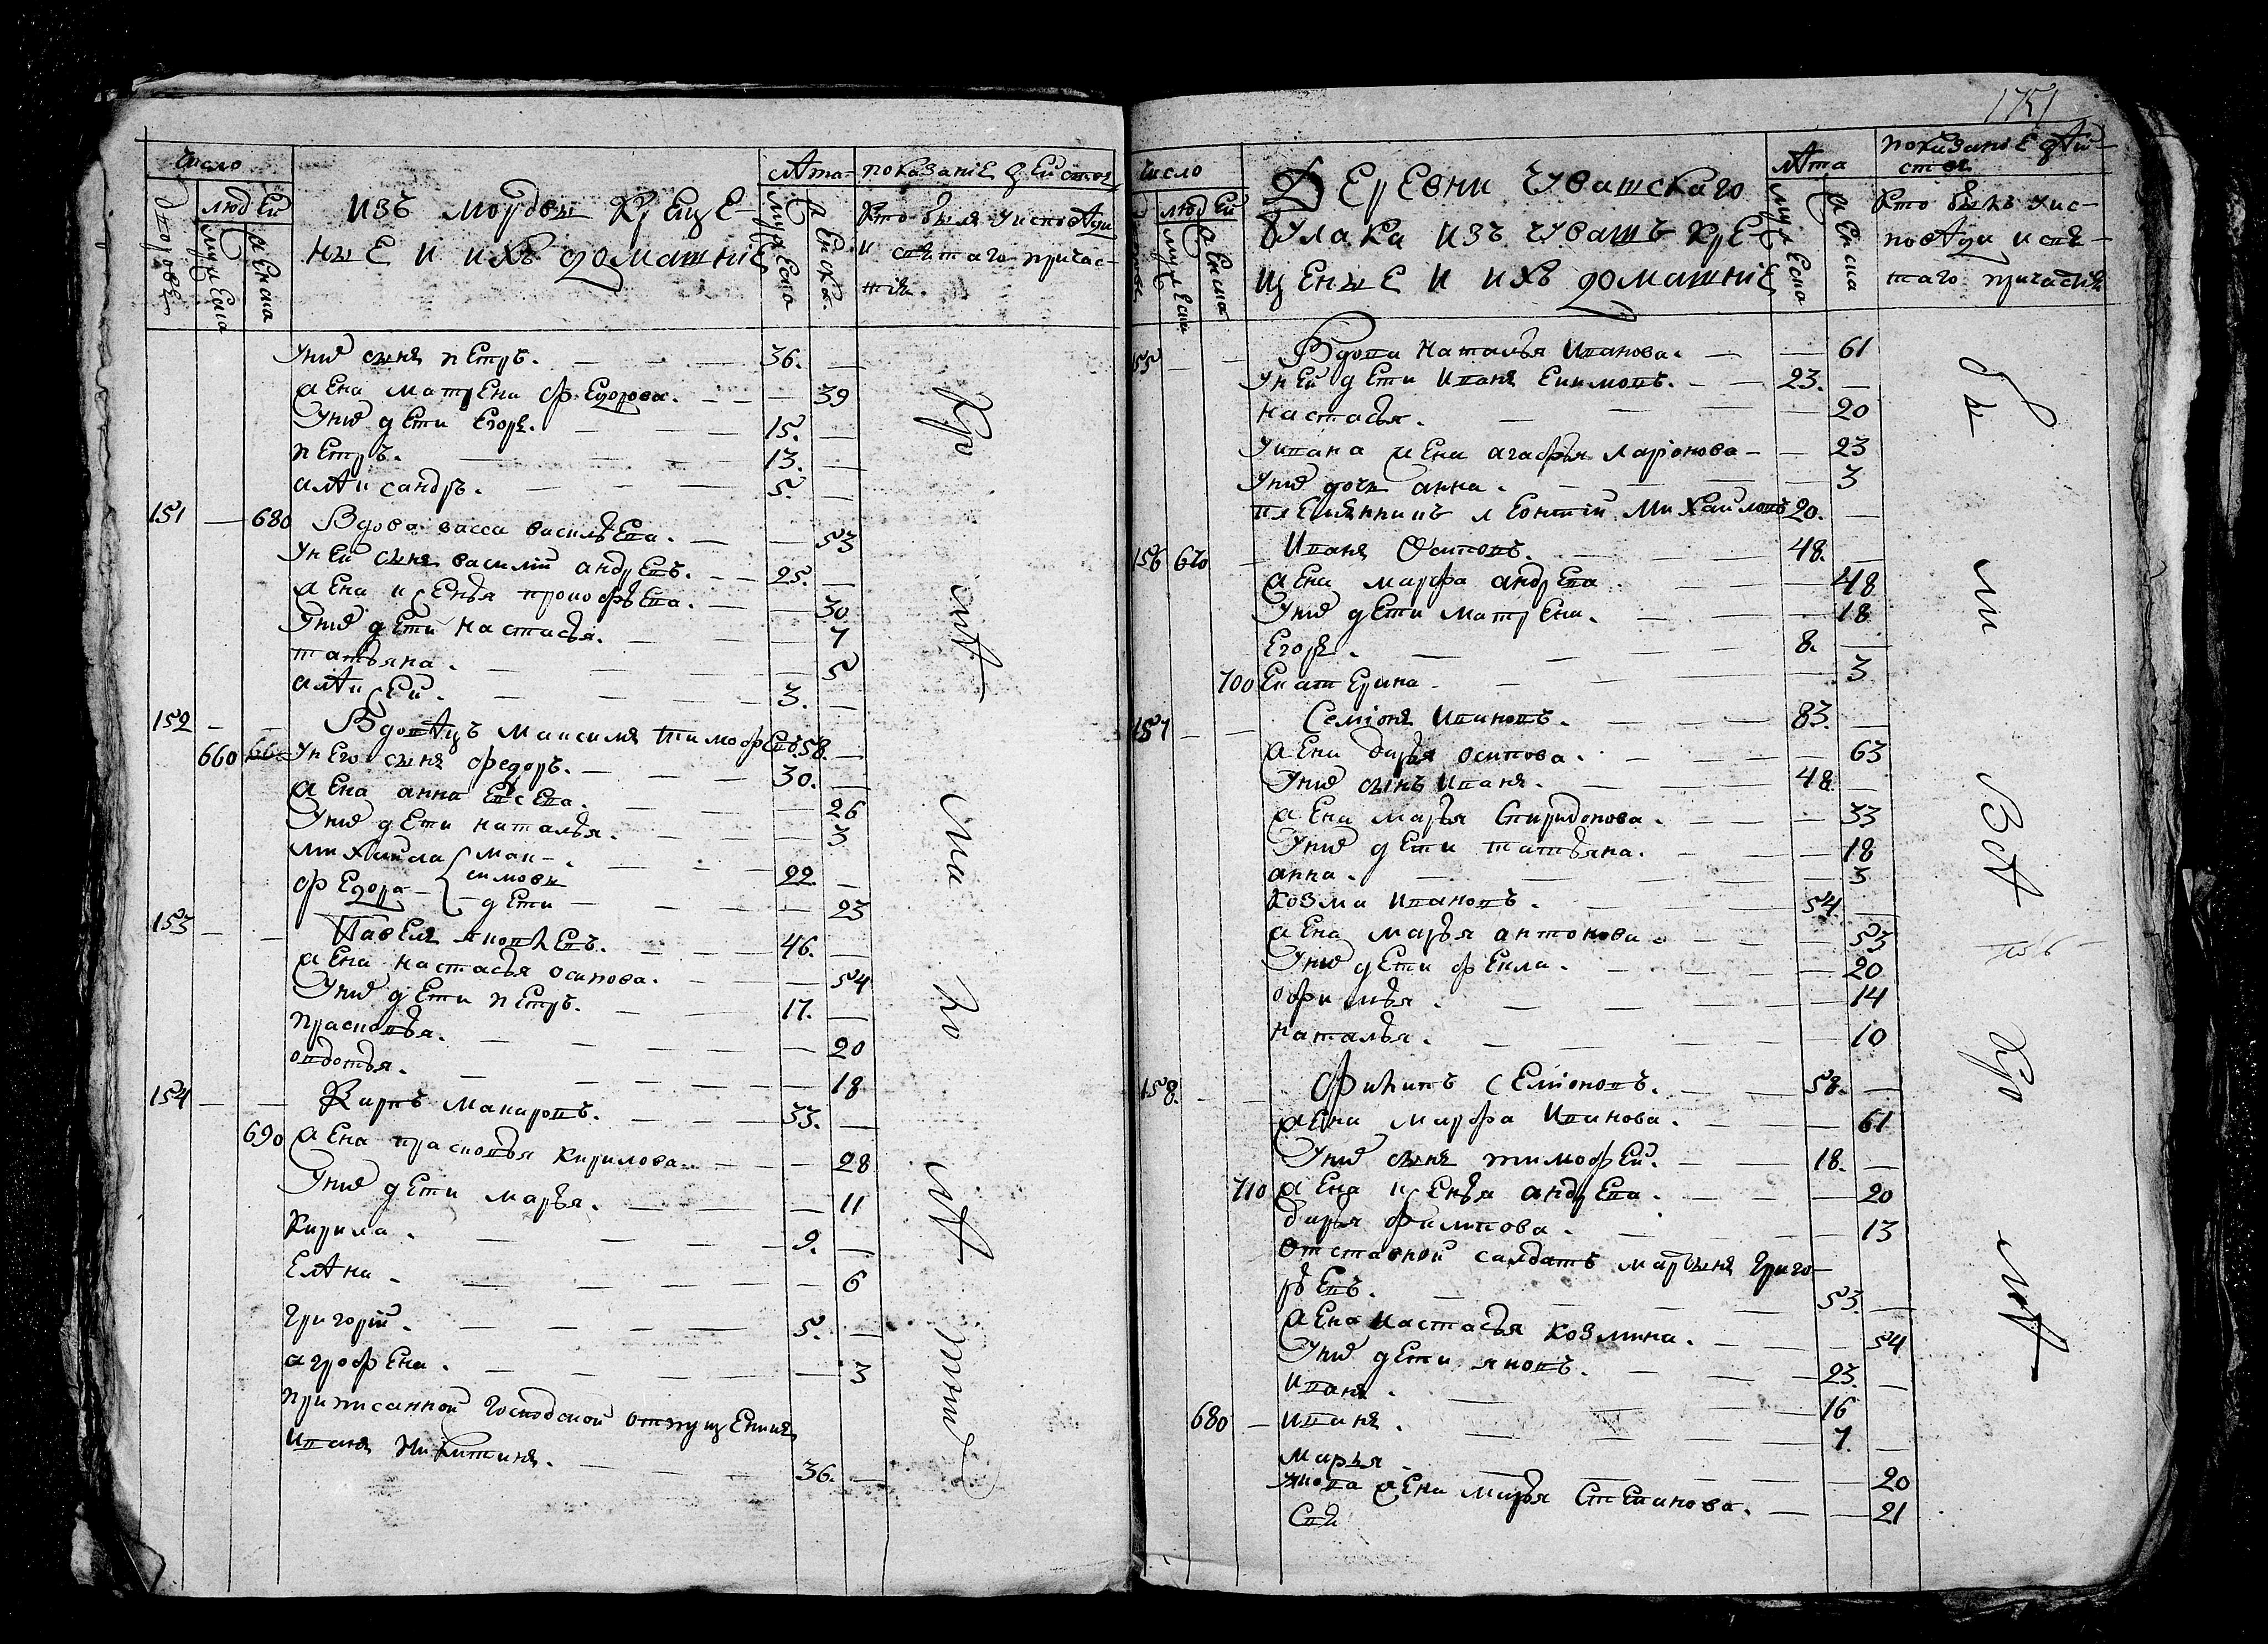 число
людей
дворовъ
мужеска
женска
изъ мордвы Креще-
ные и ихъ домашніе
лѣта
мужеска
женска
показаніе действъ
Кто былъ уисповѣди
и святаго причас-
тія.
унихъ сынъ петръ. 36.
жена матрена федорова. 39
Унихъ дети Егоръ. 15.
петръ. 13.
алѣксандръ. 5.
151 680 Вдова васса васильева. 53
уней сынъ василій андреевъ. 25.
жена ксенья прокофьева. 30
Унихъ дети настасья. 7
татьяна. 5
алѣксей. 3.
152 Вдовѣцъ максимъ тимофеевъ 58.
660 унего сынъ федоръ. 30.
жена анна Евсева. 26
Унихъ дети наталья. 3
михайла мак- 22.
федора симовы дети 23
153 Павелъ яковлевъ. 46.
жена настасья осипова. 54
Унихъ дети петръ. 17.
прасковья. 20
овдотья. 18
154 Карпъ макаровъ. 33.
690 жена прасковья кирилова. 28
Унихъ дети марья. 11
Кирила. 9.
Елѣна. 6
Григорій. 5.
агрофена. 3
приписанной господской отпущеникъ
иванъ никитинъ. 36.
1751
число
людей
мужеска
женска
Деревни чувашскаго
Улака изъ чувашъ кре-
щеные и ихъ домашніе
лѣта
мужеска
женска
показаніе дѣй-
ства
Кто былъ уис-
повѣди и свя-
таго причастія
155 Вдова Наталья Иванова. 61
уней дети Иванъ Екимовъ. 23.
настасья. 20
Уивана жена агафья ларіонова 23
Унихъ дочь анна. 3
племянникъ леонтій михайловъ 20.
156 670 Иванъ Осиповъ. 48.
жена марфа андрева 48
Унихъ дети матрена. 18
Егоръ. 8.
700 Екатерина 3
157 Семіонъ Ивановъ. 83.
жена дарья осипова. 63
Унихъ сынъ Иванъ. 48.
жена марья Спиридонова. 33
Унихъ дети татьяна. 18
анна. 3
Козма Ивановъ. 54.
жена марья антонова. 53
Унихъ дети фекла. 20
офимья. 14
наталья. 10
158. Филипъ Семіоновъ. 58.
жена марфа Иванова. 61
Унихъ сынъ тимофей. 18.
710 жена ксенья андрева. 20
дарья филипова. 13
отставной салдатъ мартынъ григо-
рьевъ. 53.
жена настасья козмина. 54
Унихъ дети яковъ. 23.
Иванъ. 16
680 Иванъ. 7.
марья 20
якова жена марья Степанова. 21